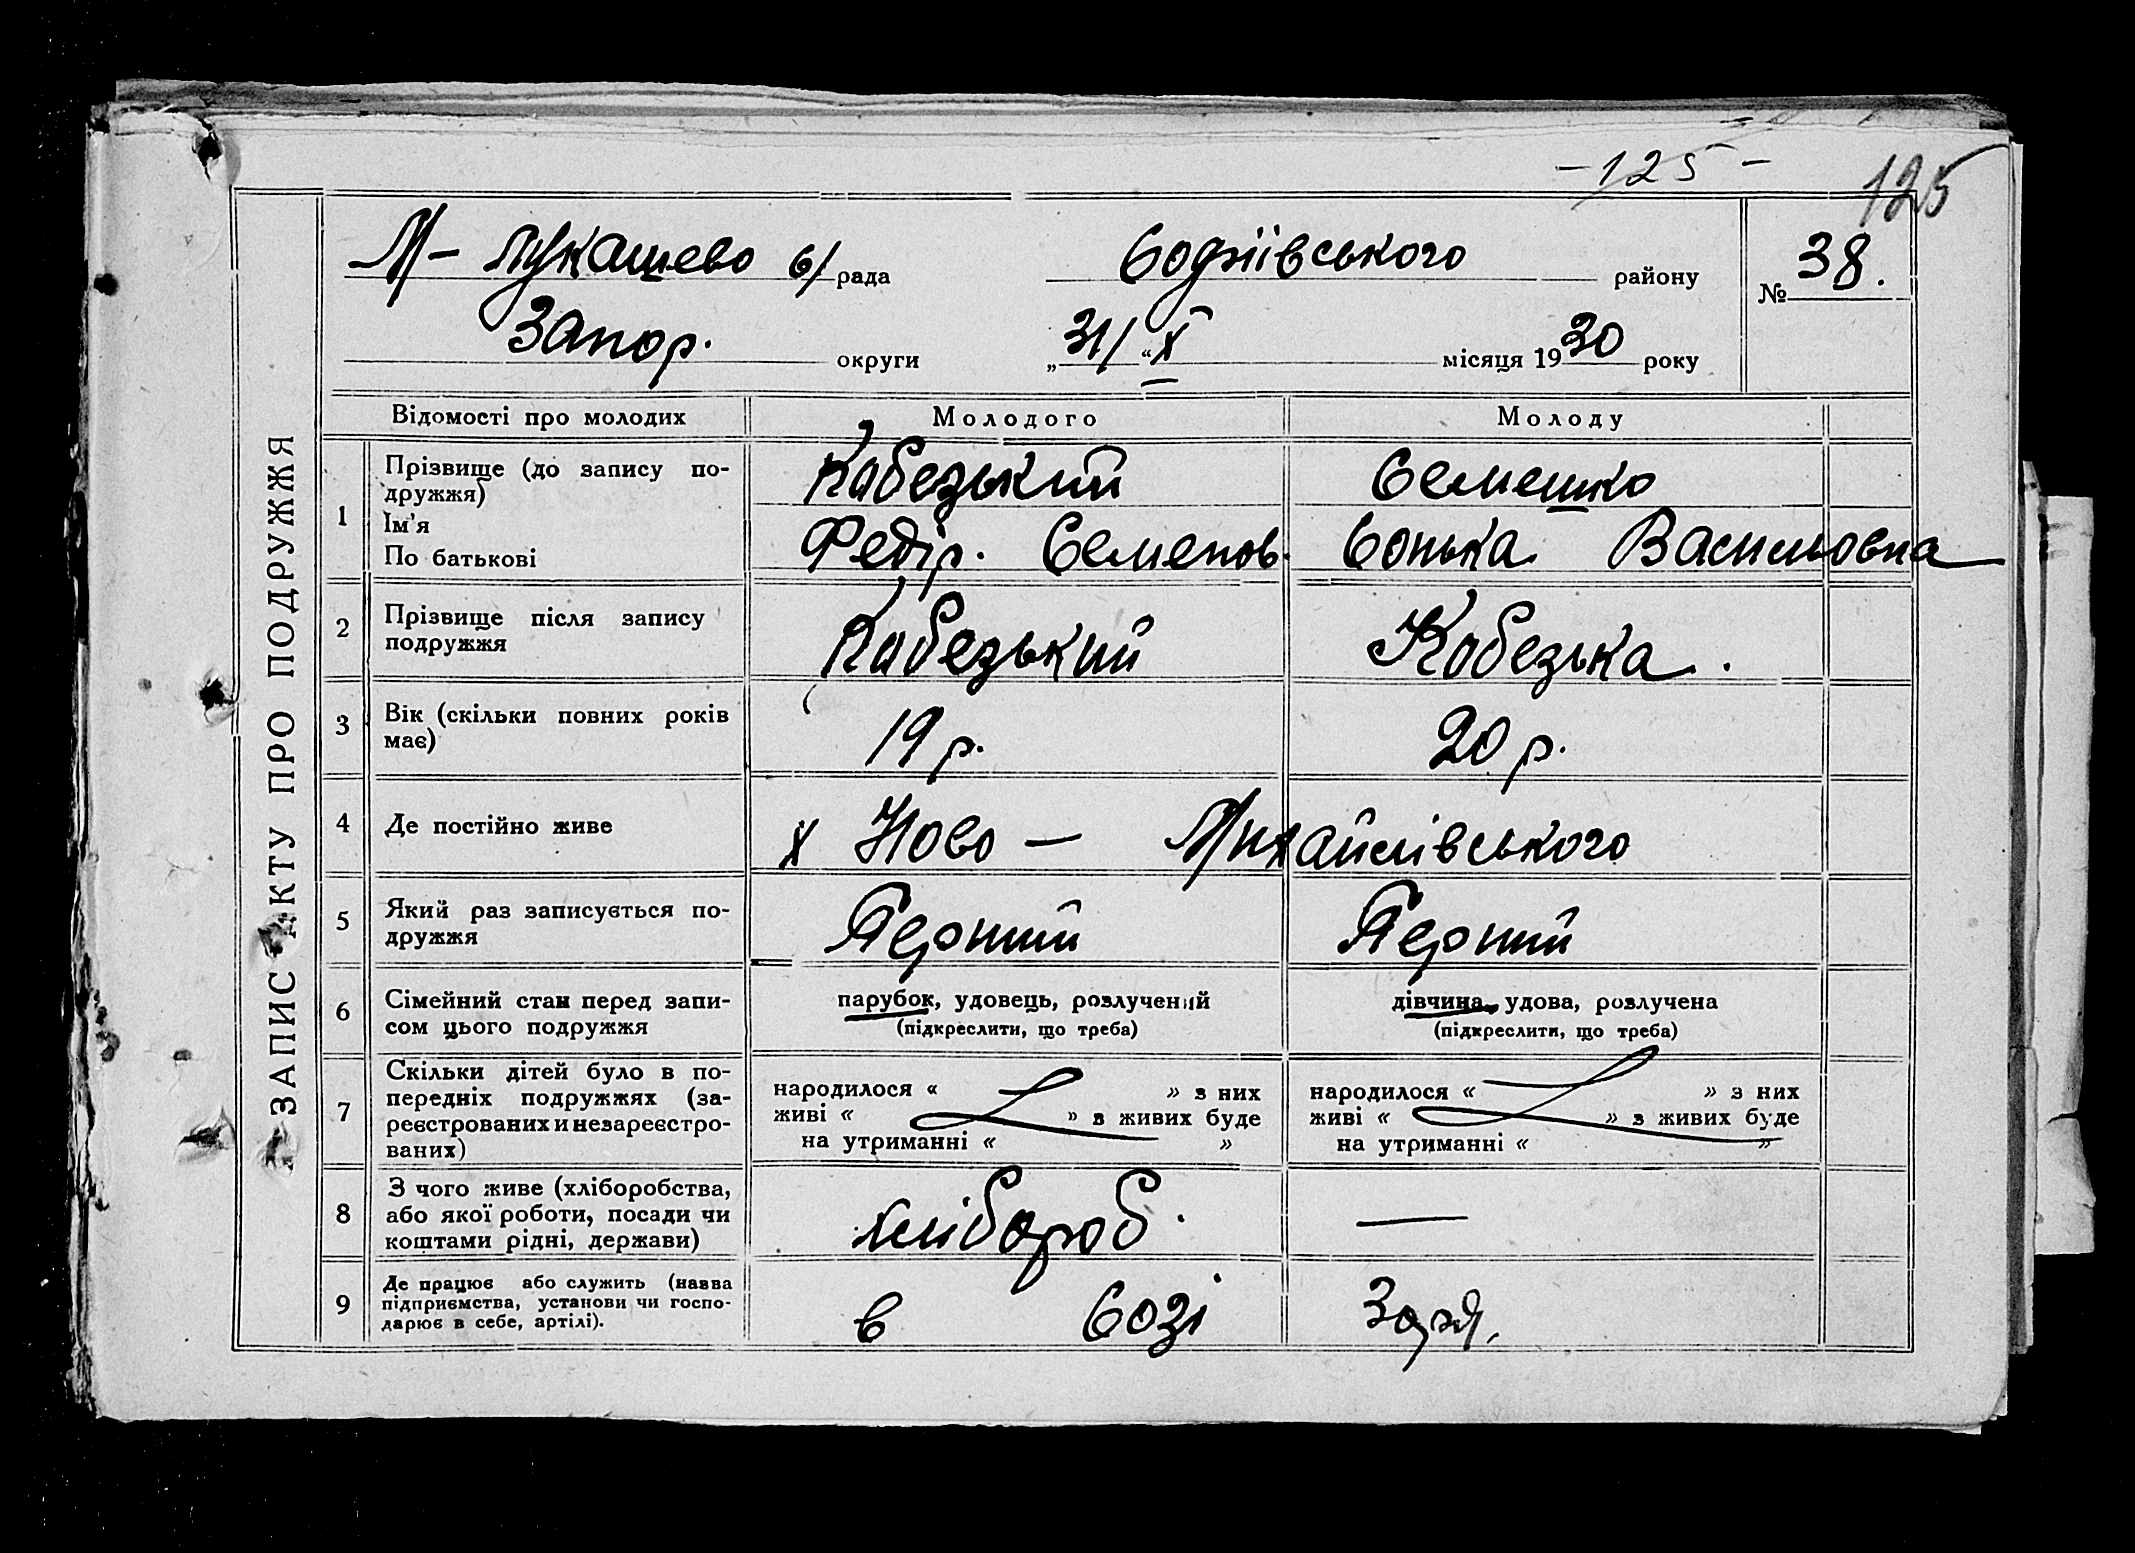 - 125 -
125
М- Лукашево с/ рада Софіївського району № 38.
Запор. округи „31/ “ X місяця 1930 року
ЗАПИС АКТУ ПРО ПОДРУЖЖЯ
Відомості про молодих Молодого Молоду
1 Прізвище (до запису по-
дружжя) Кобезький Семешко
Ім'я
По батькові Федір. Семенов. Сонька Васильовна
2 Прізвище після запису
подружжя Кобезький Кобезька.
3 Вік (скільки повних років
має) 19 р. 20 р.
4 Де постійно живе х Ново — Михайлівського
5 Який раз записується по-
дружжя Перший Перший
6 Сімейний стан перед запи-
сом цього подружжя парубок, удовець, розлучений дівчина, удова, розлучена
(підкреслити, що треба) (підкреслити, що треба)
7 Скільки дітей було в по-
передніх подружжях (за-
реєстрованих и незареєстро-
ваних) народилося « » з них народилося « » з них
живі « » з живих буде живі « » з живих буде
на утриманні « » на утриманні « »
8 З чого живе (хліборобства,
або якої роботи, посади чи
коштами рідні, держави) хлібороб. —
9 Де працює або служить (назва
підприємства, установи чи госпо-
дарює в себе, артілі). в созі Зоря.